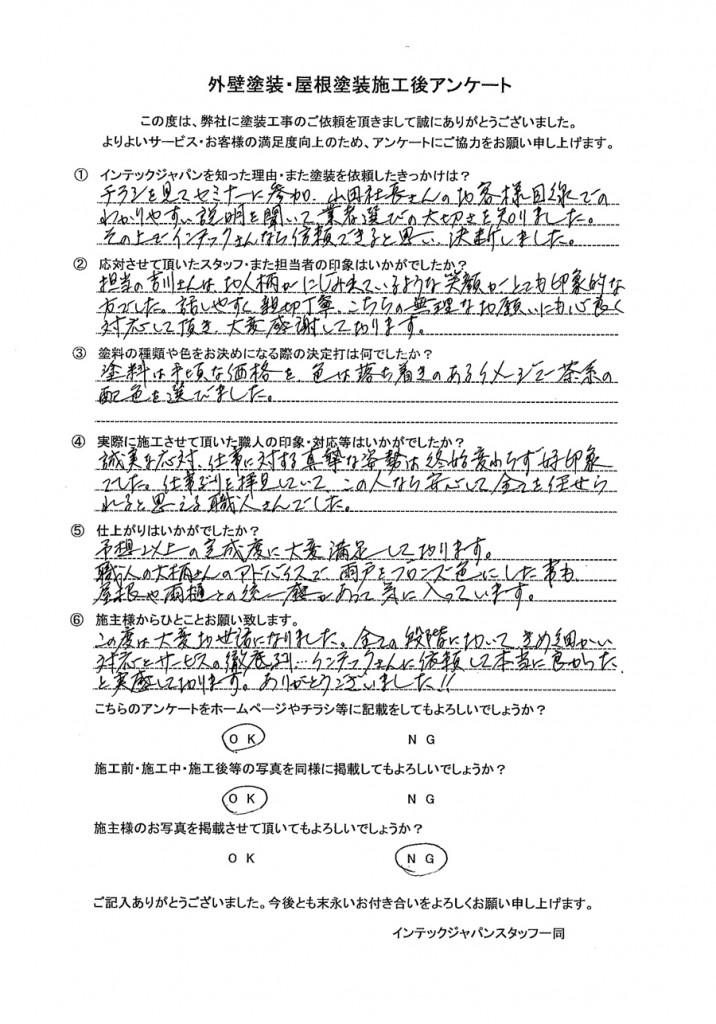 外壁塗装・屋根塗装施工後アンケート
この度は、弊社に塗装工事のご依頼を頂きまして誠にありがとうございました。
よりよいサービス・お客様の満足度向上のため、アンケートにご協力をお願い申し上げます。
① インテックジャパンを知った理由・また塗装を依頼したきっかけは?
チラシを見てセミナーに参加、山田社長さんのお客様目線での
わかりやすい説明を聞いて業者選びの大切さを知りました。
その上でインテックさんなら信頼できると思い、決断しました。
② 応対させて頂いたスタッフ・また担当者の印象はいかがでしたか?
担当の吉川さんは、お人柄がにじみ来ているような笑顔がとても印象的な
方でした。話しやすく親切丁寧、こちらの無理なお願いにも心良く
対応して頂き、大変感謝して切ります。
③ 塗料の種類や色をお決めになる際の決定打は何でしたか?
塗料は手頃な価格を、色は落ち着きのあるイメージで茶系の
配色を選びました。
④ 実際に施工させて頂いた職人の印象・対応等はいかがでしたか?
誠実な応対、仕事に対する真摯な姿勢は終始変わらず好印象
でした。仕事ぶりを拝見していて、この人なら安心して全てを任せら
れると思える職人さんでした。
⑤ 仕上がりはいかがでしたか?
予想以上の完成度に大変満足しております。
職人の大橋さんのアドバイスで雨戸をブロンズ色にした事も
屋根や雨樋との統一感があって気に入っています。
⑥ 施主様からひとことお願い致します。
この度は大変お世話になりました。全ての段階において、きめ細かい
対応とサービスの徹底ぶり…インテックさんに依頼して本当に良かった
と実感しております。ありがとうございました!!
こちらのアンケートをホームページやチラシ等に記載をしてもよろしいでしょうか?
OK NG
施工前・施工中・施工後等の写真を同様に掲載してもよろしいでしょうか?
OK NG
施主様のお写真を掲載させて頂いてもよろしいでしょうか?
OK NG
ご記入ありがとうございました。今後とも末永いお付き合いをよろしくお願い申し上げます。
インテックジャパンスタッフ一同